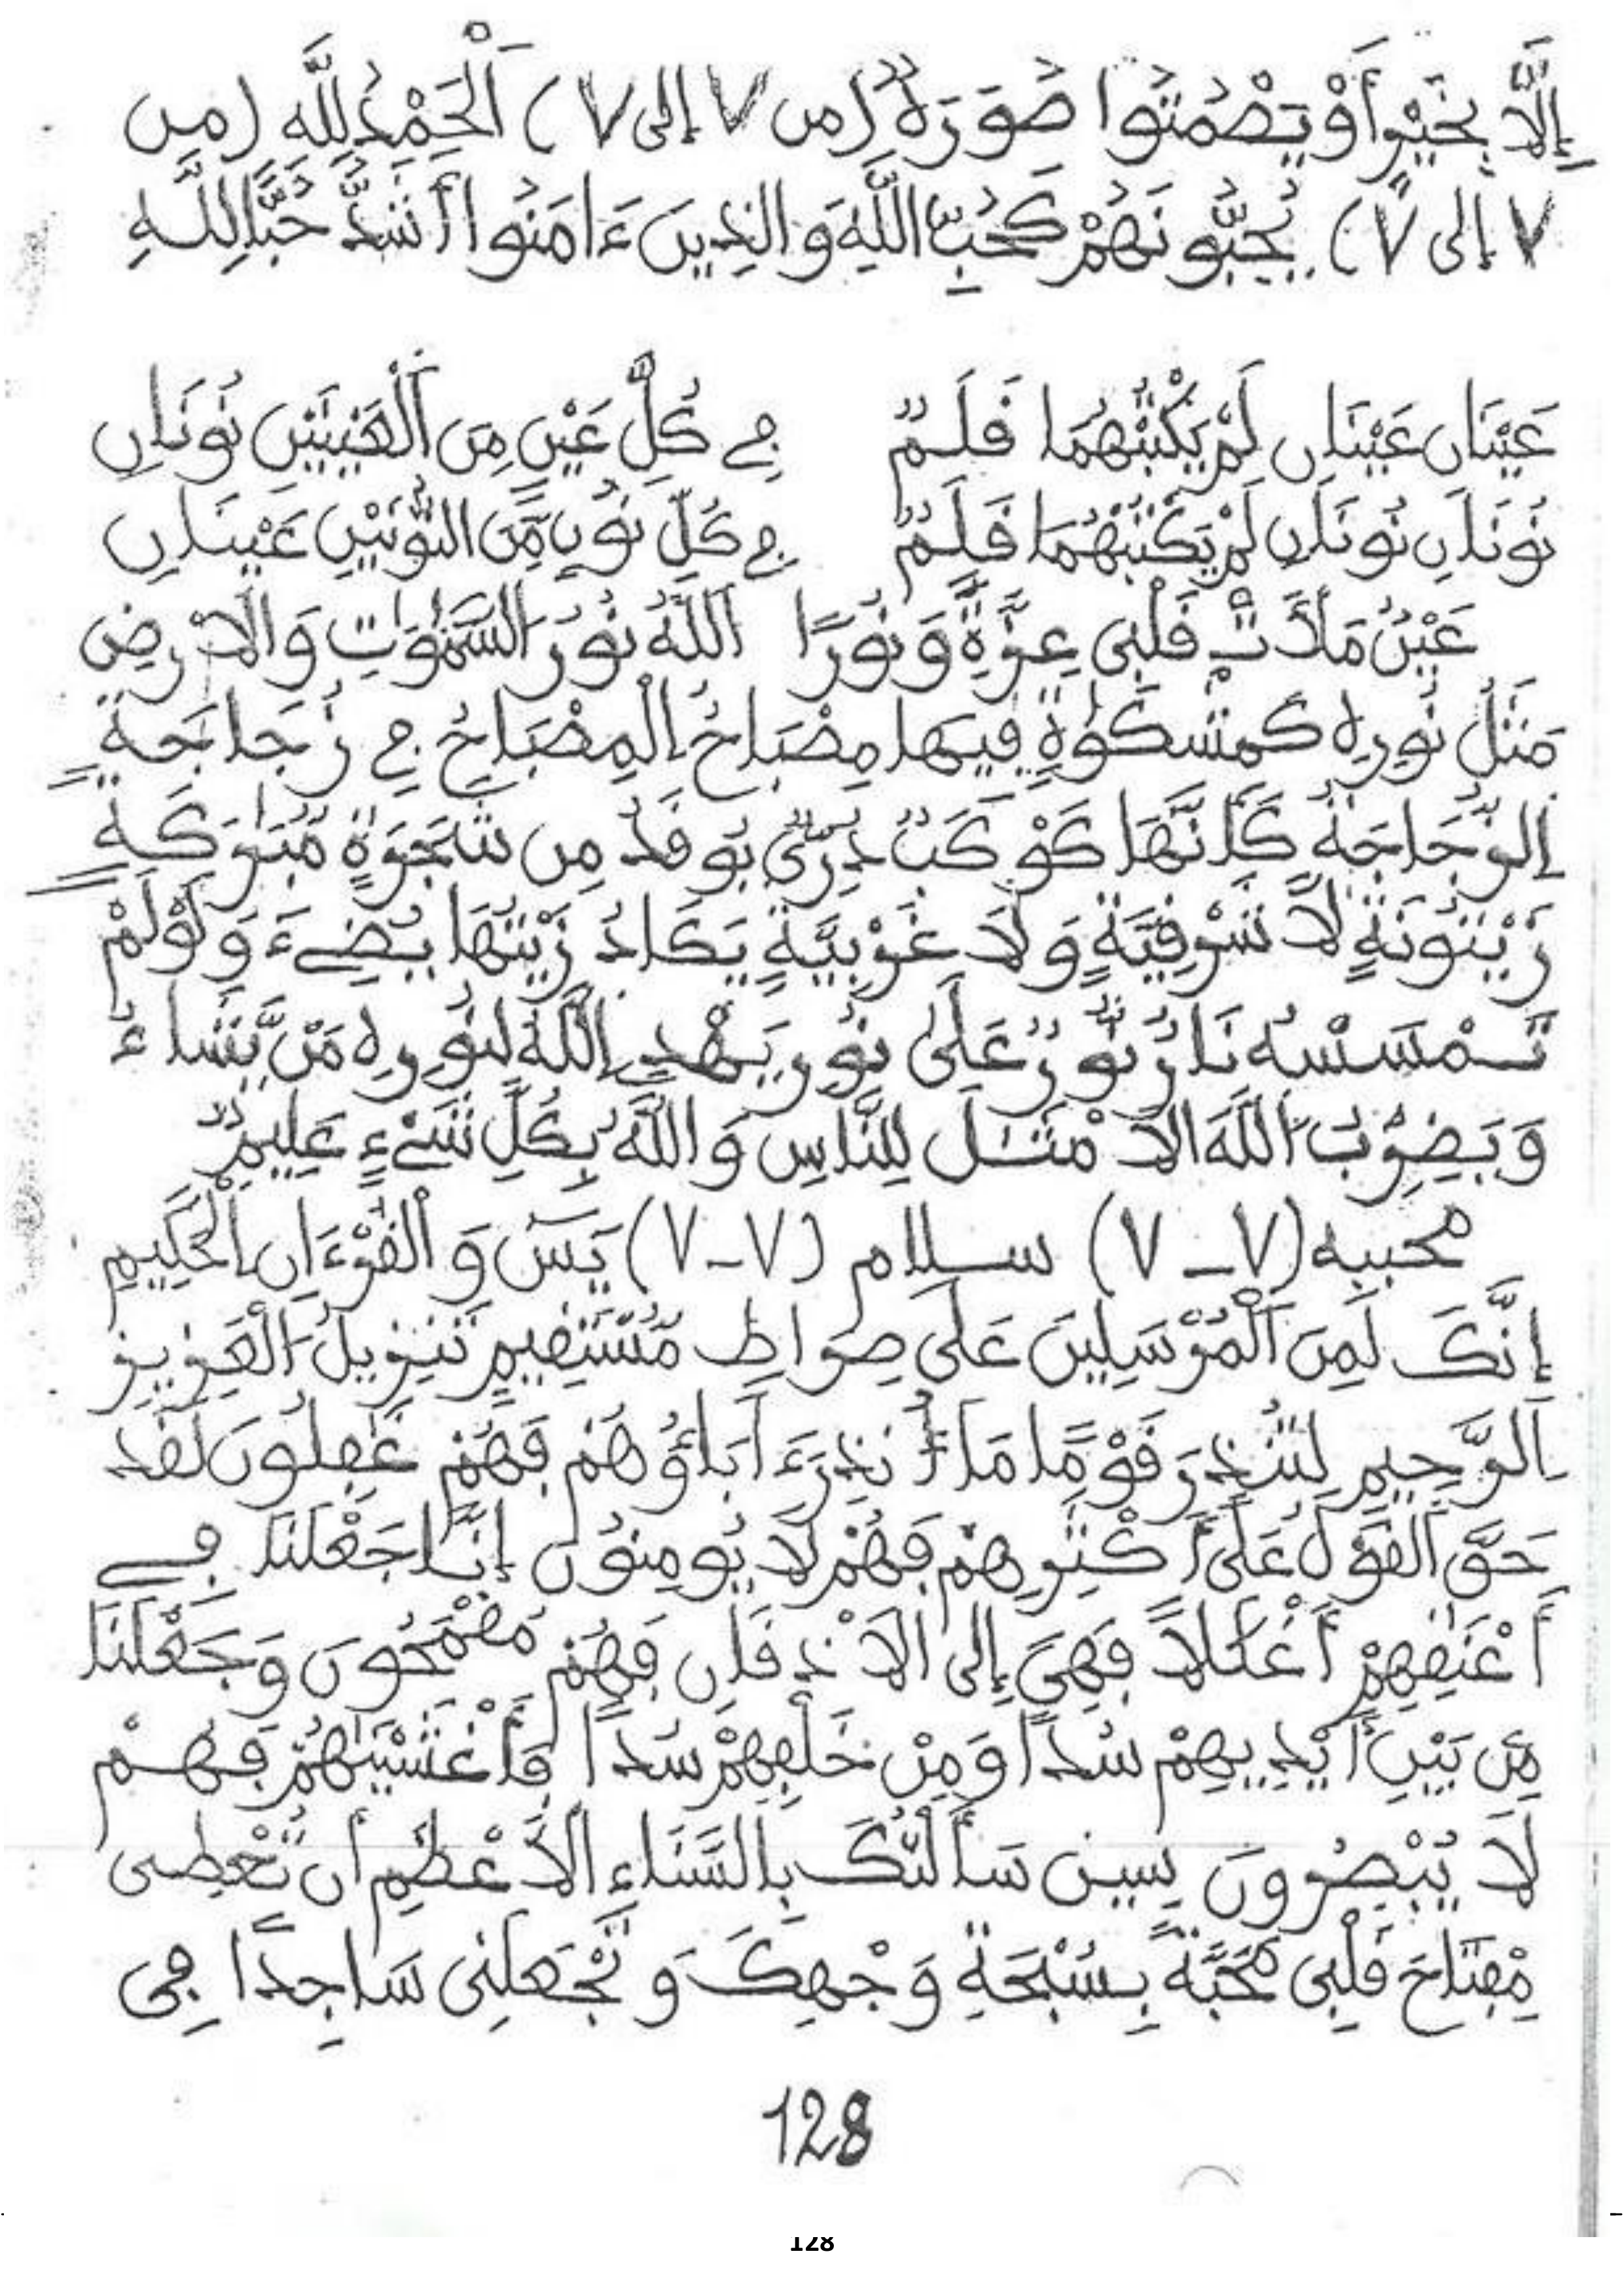 إِلَّا بِخَيْرٍ أَوْ يَصْمُتُوا صُوَرَةٌ (من ٧ إلى ٧) اَلْحَمْدُ لِلَّهِ (من
٧ إلى ٧) يُحِبُّونَهُمْ كَحُبِّ اللَّهِ وَالذِينَ ءَامَنُوا أَشَدُّ حُبًّا لِلَّهِ
عَيْنَانِ عَيْنَانِ لَمْ يَكْتُبْهُمَا قَلَمٌ فِي كُلِّ عَيْنٍ مِنَ الْعَيْنَيْنِ نُونَانِ
نُونَانِ نُونَانِ لَمْ يَكْتُبْهُمَا قَلَمٌ فِي كُلِّ نُونٍ مِّنَ النُّونَيْنِ عَيْنَانِ
عَيْنٌ مَلَأَتْ قَلْبِي عِزَّةً وَنُورًا اَللَّهُ نُورُ السَّمَٰوَٰتِ وَالَارْضِ
مَثَلُ نُورِهِ كَمِشْكَوٰةٍ فِيهَا مِصْبَاحُ الْمِصْبَاحُ فِي زُجَاجَةٍ
اِلزُّجَاجَةُ كَأَنَّهَا كَوْكَبٌ دُرِّيٌّ يُوقَدُ مِن شَجَرَةٍ مُّبَٰرَكَةٍ
زَيْتُونَةٍ لَّا شَرْقِيَّةٍ وَلَا غَرْبِيَّةٍ يَكَادُ زَيْتُهَا يُضِيءُ وَلَوْ لَمْ
تَمْسَسْهُ نَارٌ نُّورٌ عَلَىٰ نُورٍ يَهْدِي اللَّهُ لِنُورِهِ مَنْ يَّشَاءُ
وَيَضْرِبُ اللَّهُ الَامْثَٰلَ لِلنَّاسِ وَاللَّهُ بِكُلِّ شَيْءٍ عَلِيمٌ
محببه (٧-٧) سلام (٧-٧) يَسٓ وَالْقُرْءَانِ الْحَكِيمِ
إِنَّكَ لَمِنَ الْمُرْسَلِينَ عَلَى صِرَاطٍ مُّسْتَقِيمٍ تَنزِيلُ الْعَزِيزِ
اِلرَّحِيمِ لِتُنذِرَ قَوْمًا مَا أُنذِرَ ءَابَاؤُهُمْ فَهُمْ غَٰفِلُونَ لَقَدْ
حَقَّ الْقَوْلُ عَلَى أَكْثَرِهِمْ فَهُمْ لَا يُومِنُونَ إِنَّا جَعَلْنَا فِي
أَعْنَٰقِهِمْ أَغْلَٰلًا فَهِيَ إِلَى الَاذْقَانِ فَهُم مُّقْمَحُونَ وَجَعَلْنَا
مِن بَيْنِ أَيْدِيهِمْ سُدًّا وَمِنْ خَلْفِهِمْ سُدًّا فَأَغْشَيْنَٰهُمْ فَهُمْ
لَا يُبْصِرُونَ يسين سَأَلْتُكَ بِالسَّنَاءِ الَاعْظَمِ أَن تُعْطِى
مِفْتَاحَ قَلْبِى مَحَبَّةً بِسُبْحَةِ وَجْهِكَ وَتَجْعَلَنِى سَاجِدًا فِى
128
128